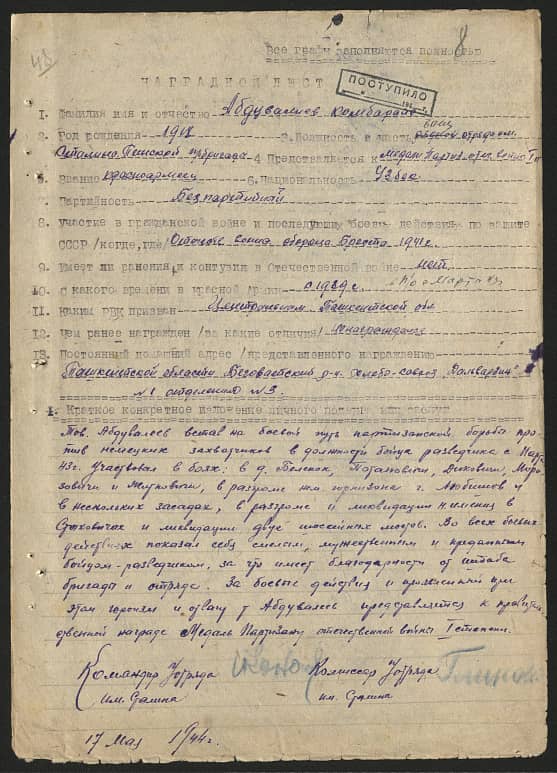 48
8
Все графы заполняются полностью
НАГРАДНОЙ ЛИСТ
ПОСТУПИЛО
1. Фамилия имя и отчество Абдувалиев Комбарали
2. Год рождения 1918 3. Должность и часть боец отряда им.
Сталина Пинской п/бригада 4 Представляется к медали Партизан отеч. войны I ст
5. Звание красноармеец 6. Национальность Узбек
7. Партийность Безпартийный
8. участие в гражданской войне и последующих боевых действиях по защите
СССР /когда, где/ Отечеств. война оборона Бреста 1941 г.
9. Имеет ли ранения и контузии в Отечественной войне нет
10. с какого времени в красной Армии с 1939 г. по Марта 43
11. Каким РВК призван Ташкентской обл
12. Чем ранее награжден /за какие отличия/
13. Постоянный домашний адрес /представленного к награждению
Ташкентской области р-н. "Дальварзин"
№1 отделения №3.
1. Краткое конкретное изложение личного подвига или заслуг
Тов. Абдувалиев встав на боевой путь партизанской борьбы про-
тив немецких захватчиков в должности бойца разведчика с Март
43 г. Участвовал в боях: в д. Потаповичи,
и в разгроме нем. гарнизона г. Любишов и
в нескольких засадах, в разгроме и ликвидации имения в
и ликвидации двух шоссейных мостов. Во всех боевых
действиях показал себя смелым, мужественным и преданным
бойцом-разведчиком, за что имеет благодарности от штаба
бригады и отряда. За боевые действия и проявленный при
этом героизм и отвагу т Абдувалиев представляется к правите
ственной награде Медаль Партизану отечественной войны I степени.
Командир отряда Комиссар отряда
им. Сталина им. Сталина
17 Мая 1944 г.